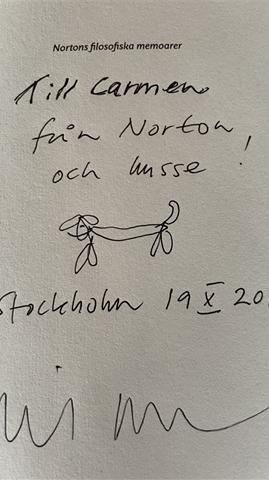 Nortons filosofiska memoarer
Till Carmen
från Norton
och husse!
Stockholm 19 X 20